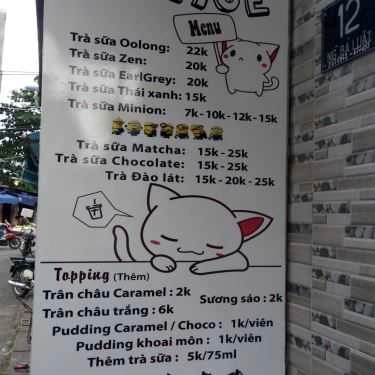 Menu
Trà sữa Oolong: 22k
Trà sữa Zen: 20k
Trà sữa EarlGrey: 20k
Trà sữa Thái xanh: 15k
Trà sữa Minion: 7k - 10k - 12k - 15k
Trà sữa Matcha: 15k - 25k
Trà sữa Chocolate: 15k - 25k
Trà Đào lát: 15k - 20k - 25k
Topping (Thêm)
Trân châu Caramel : 2k
Sương sáo : 2k
Trân châu trắng : 6k
Pudding Caramel / Choco : 1k/viên
Pudding khoai môn : 1k/viên
Thêm trà sữa : 5k/75ml
12